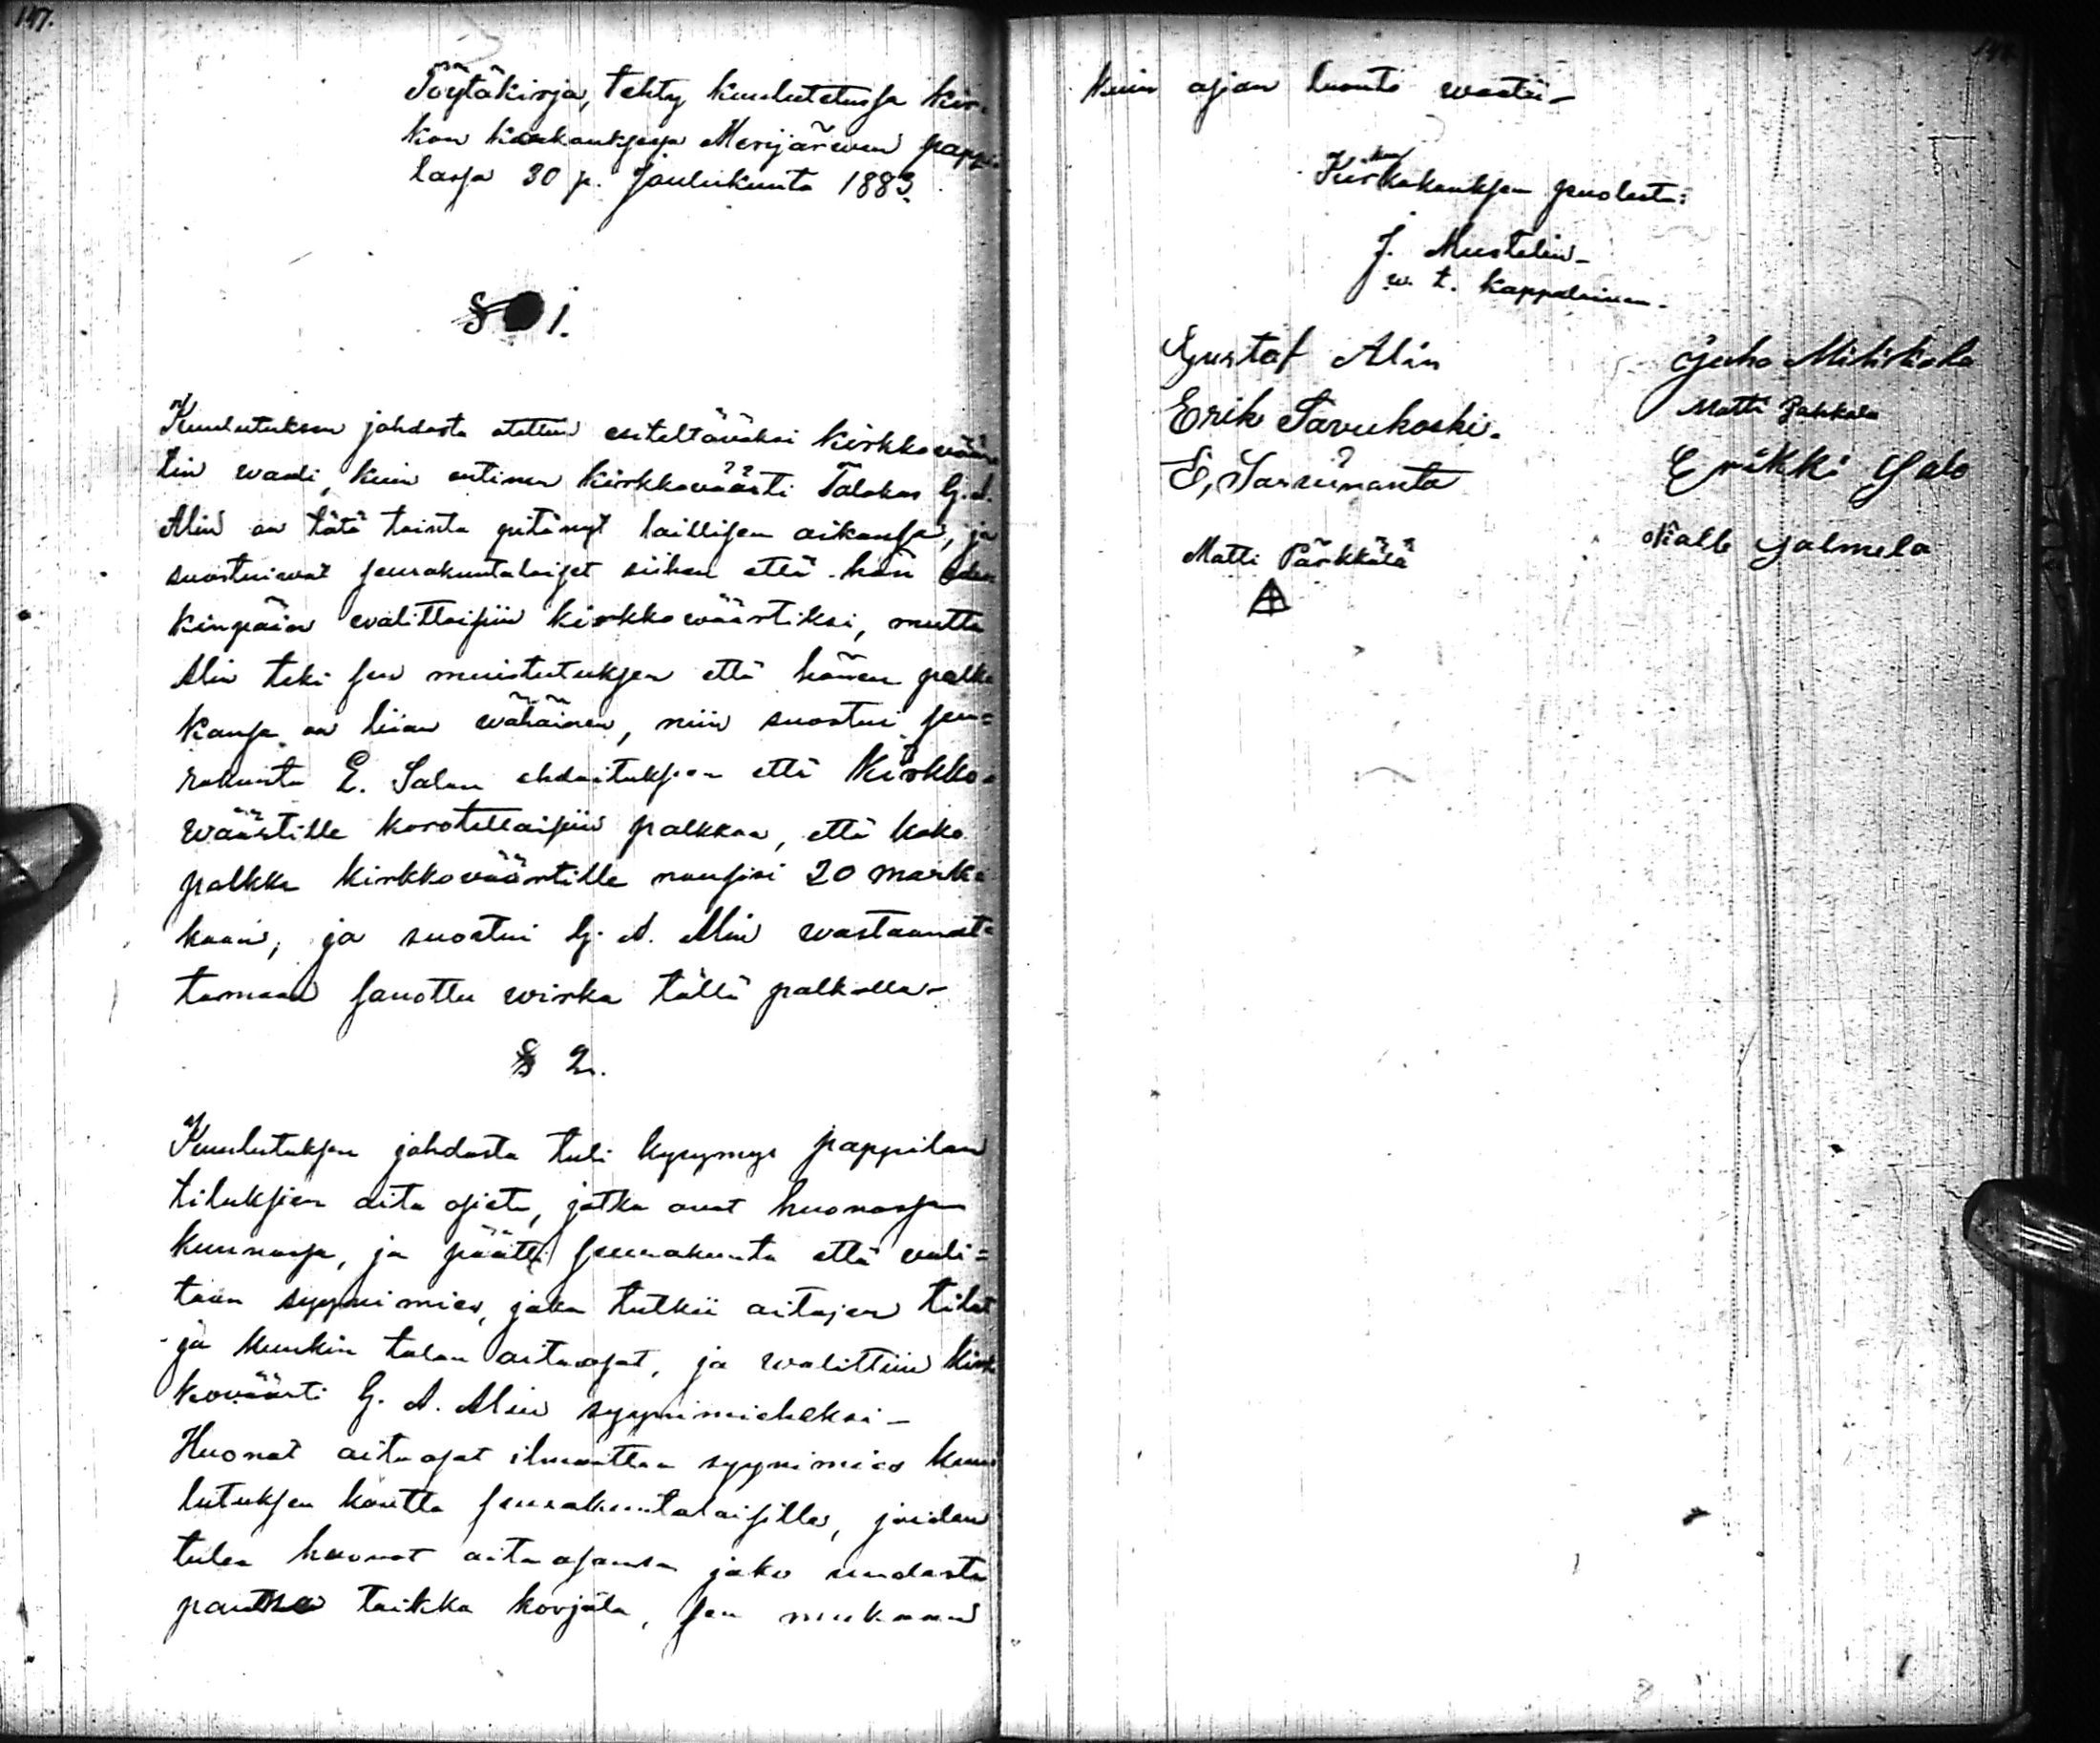 147.
Pöytäkirja, tehty kuulutetussa kir-
kon kokouksessa Merijärven pappi-
lassa 30 p. Joulukuuta 1883.
§ 1.
Kuulutuksen johdosta otettiin esiteltäväksi kirkkoväär-
tin vaali, kuin entinen kirkkoväärti Talokas G. A.
Alin on tätä tointa pitänyt laillisen aikansa, ja
suostuivat seurakuntalaiset siihen että hän edes-
kinpäin valittaisiin kirkkowäärtiksi, mutta
Alin teki sen muistutuksen että hänen palk-
kansa on liian wähäinen, niin suostui seu-
rakunta E. Salon ehdoitukseen että Kirkko-
wäärtille korotettaisiin palkkaa, että koko
palkka kirkkoväärtille nousisi 20 mark-
kaan, ja suostui G. A. Alin wastaanot-
tamaan sanottu wirka tällä palkalla-
§ 2.
Kuulutuksen johdosta tuli kysymys pappilan
tiluksien aita osista, jotka ovat huonossa
kunnossa, ja päätti seurakunta että vali-
taan syynimies, joka tutkii aitojen tilat
ja kunkin talon aitaosat, ja walittiin kirk-
koväärti G. A. Alin syynimieheksi-
Huonot aitaosat ilmoittaa syynimies kuu-
lutuksen kautta seurakuntalaisille, joiden
tulee huonot aitaosansa joko uudesta
panna taikka korjata, sen mukaan
kuin asian luonto waatii-
Kirkonkokouksen puolesta:
J. Mustelin-
w. t. Kappalainen-
Gustaf Alin
Juho Mehtäkala
Erik Savukoski.
Matti Jukkola
E, Sarjunanta
Erikki Salo
Matti Pärkkälä
Kalle Jalmela